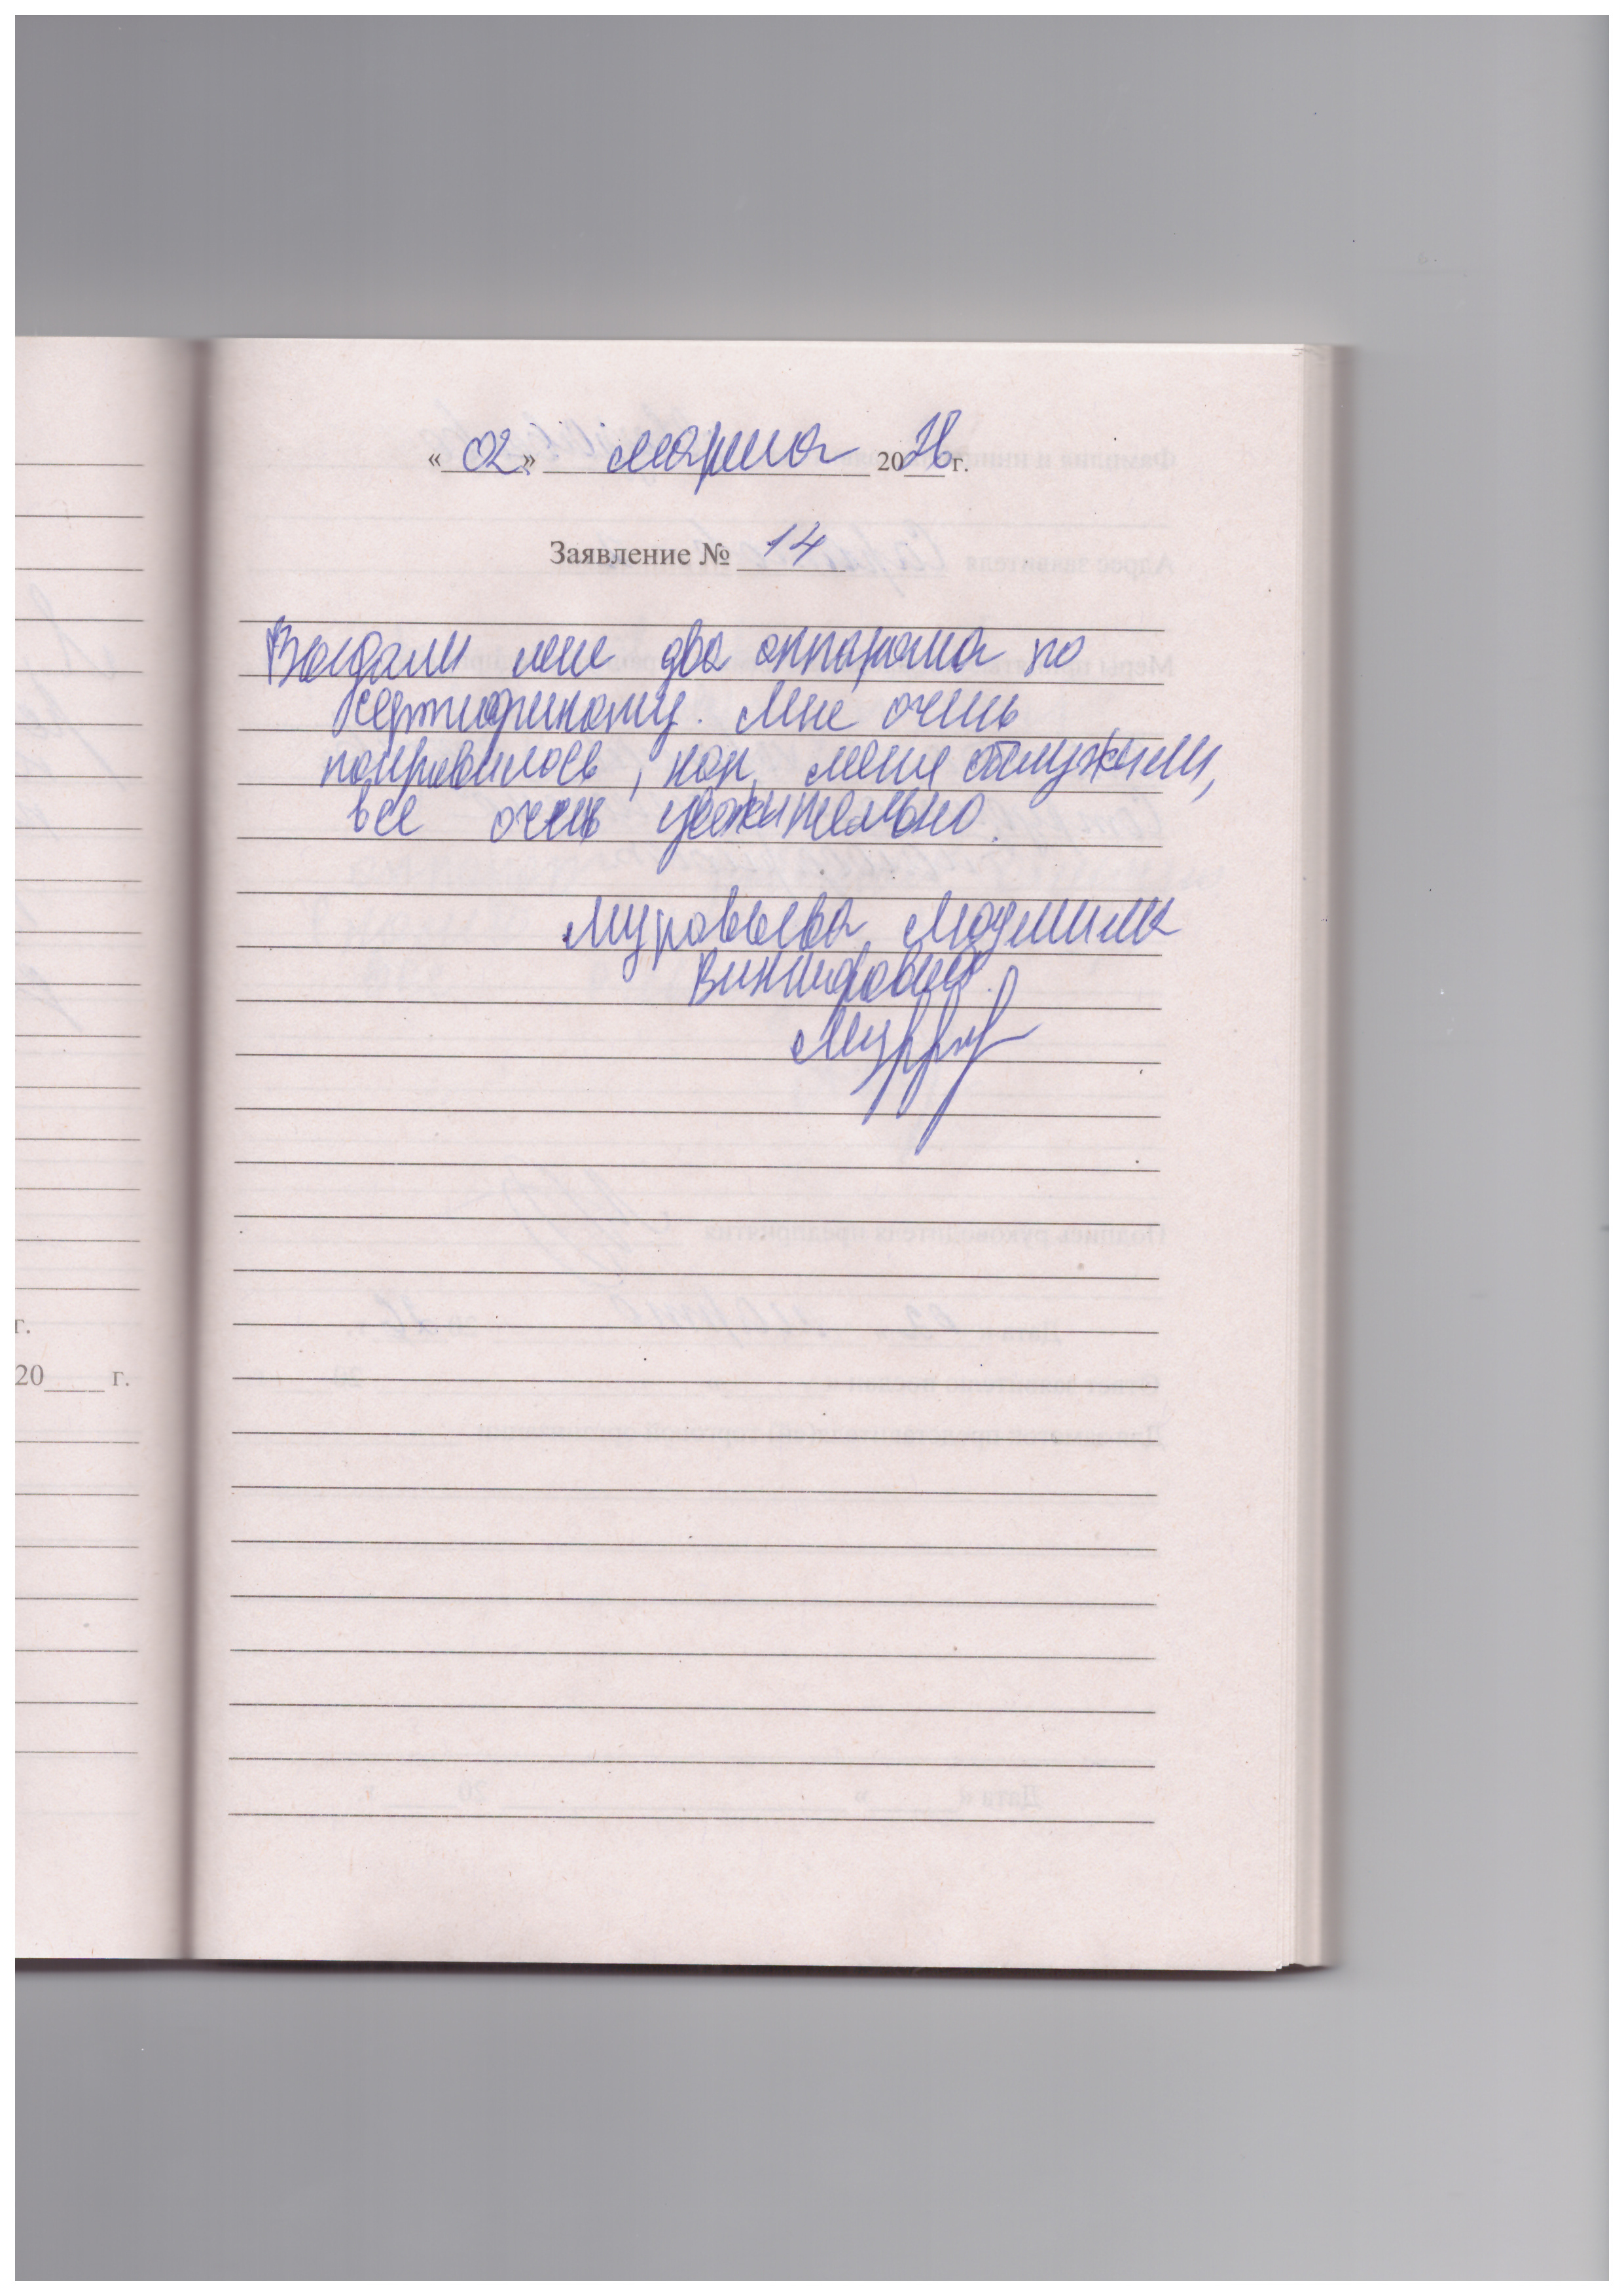 «02» марта 2026 г.
Заявление № 14
Выдали мне два аппарата по
сертификату. Мне очень
понравилось, как меня обслужили,
все очень уважительно.
Муравьева Людмила
Викторовна.
г.
20____ г.